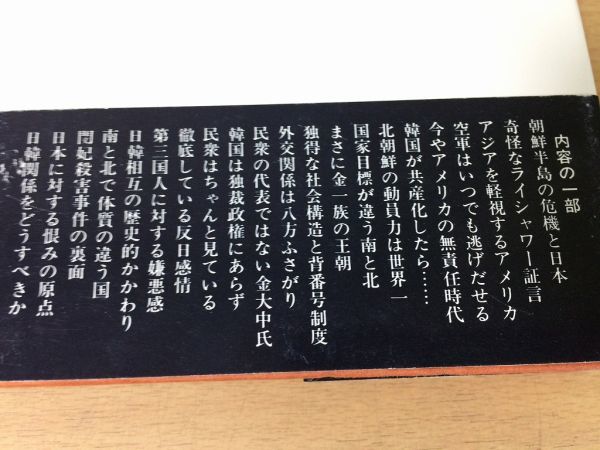 内容の一部
朝鮮半島の危機と日本
奇怪なライシャワー証言
アジアを軽視するアメリカ
空軍はいつでも逃げだせる
今やアメリカの無責任時代
韓国が共産化したら……
北朝鮮の動員力は世界一
国家目標が違う南と北
まさに金一族の王朝
独得な社会構造と背番号制度
外交関係は八方ふさがり
民衆の代表ではない金大中氏
韓国は独裁政権にあらず
民衆はちゃんと見ている
徹底している反日感情
第三国人に対する嫌悪感
日韓相互の歴史的かかわり
南と北で体質の違う国
閔妃殺害事件の裏面
日本に対する恨みの原点
日韓関係をどうすべきか